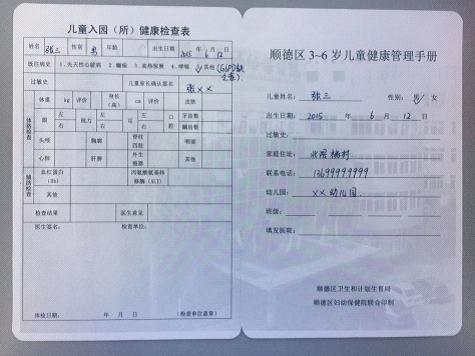 儿童入园（所）健康检查表
姓名 张三 性别 男 年龄 出生日期 2015 年 6 月 12 日
既往病史 1.先天性心脏病 2.癫痫 3.高热惊厥 4.哮喘 5.其他（G6PD缺乏症）
过敏史 儿童家长确认签名 张××
体格检查
体重 kg 评价 身长（高） cm 评价
眼 左 右 视力 左 右 耳 左 右 口腔 牙齿数 龋齿数
头颅 胸廓 脊柱四肢 咽部
心肺 肝脾 外生殖器 其他
辅助检查
血红蛋白（Hb） 丙氨酸氨基转移酶（ALT）
其他
检查结果 医生意见
医生签名： 检查单位：
体检日期： 年 月 日 （检查单位盖章）
顺德区 3~6 岁儿童健康管理手册
儿童姓名： 张三 性别： 男/女
出生日期： 2015 年 6 月 12 日
过敏史：
家庭住址：
联系电话： 13699999999
幼儿园： ××幼儿园
班级：
填发医院：
顺德区卫生和计划生育局
顺德区妇幼保健院联合印制